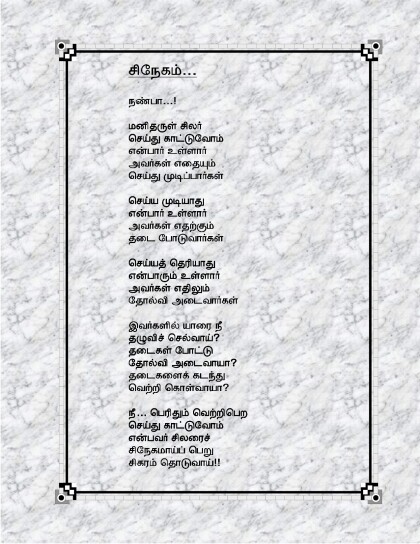 சிநேகம்...
நண்பா...!
மனிதருள் சிலர்
செய்து காட்டுவோம்
என்பார் உள்ளார்
அவர்கள் எதையும்
செய்து முடிப்பார்கள்
செய்ய முடியாது
என்பார் உள்ளார்
அவர்கள் எதற்கும்
தடை போடுவார்கள்
செய்யத் தெரியாது
என்பாரும் உள்ளார்
அவர்கள் எதிலும்
தோல்வி அடைவார்கள்
இவர்களில் யாரை நீ
தழுவிச் செல்வாய்?
தடைகள் போட்டு
தோல்வி அடைவாயா?
தடைகளைக் கடந்து
வெற்றி கொள்வாயா?
நீ... பெரிதும் வெற்றிபெற
செய்து காட்டுவோம்
என்பவர் சிலரைச்
சிநேகமாய்ப் பெறு
சிகரம் தொடுவாய்!!